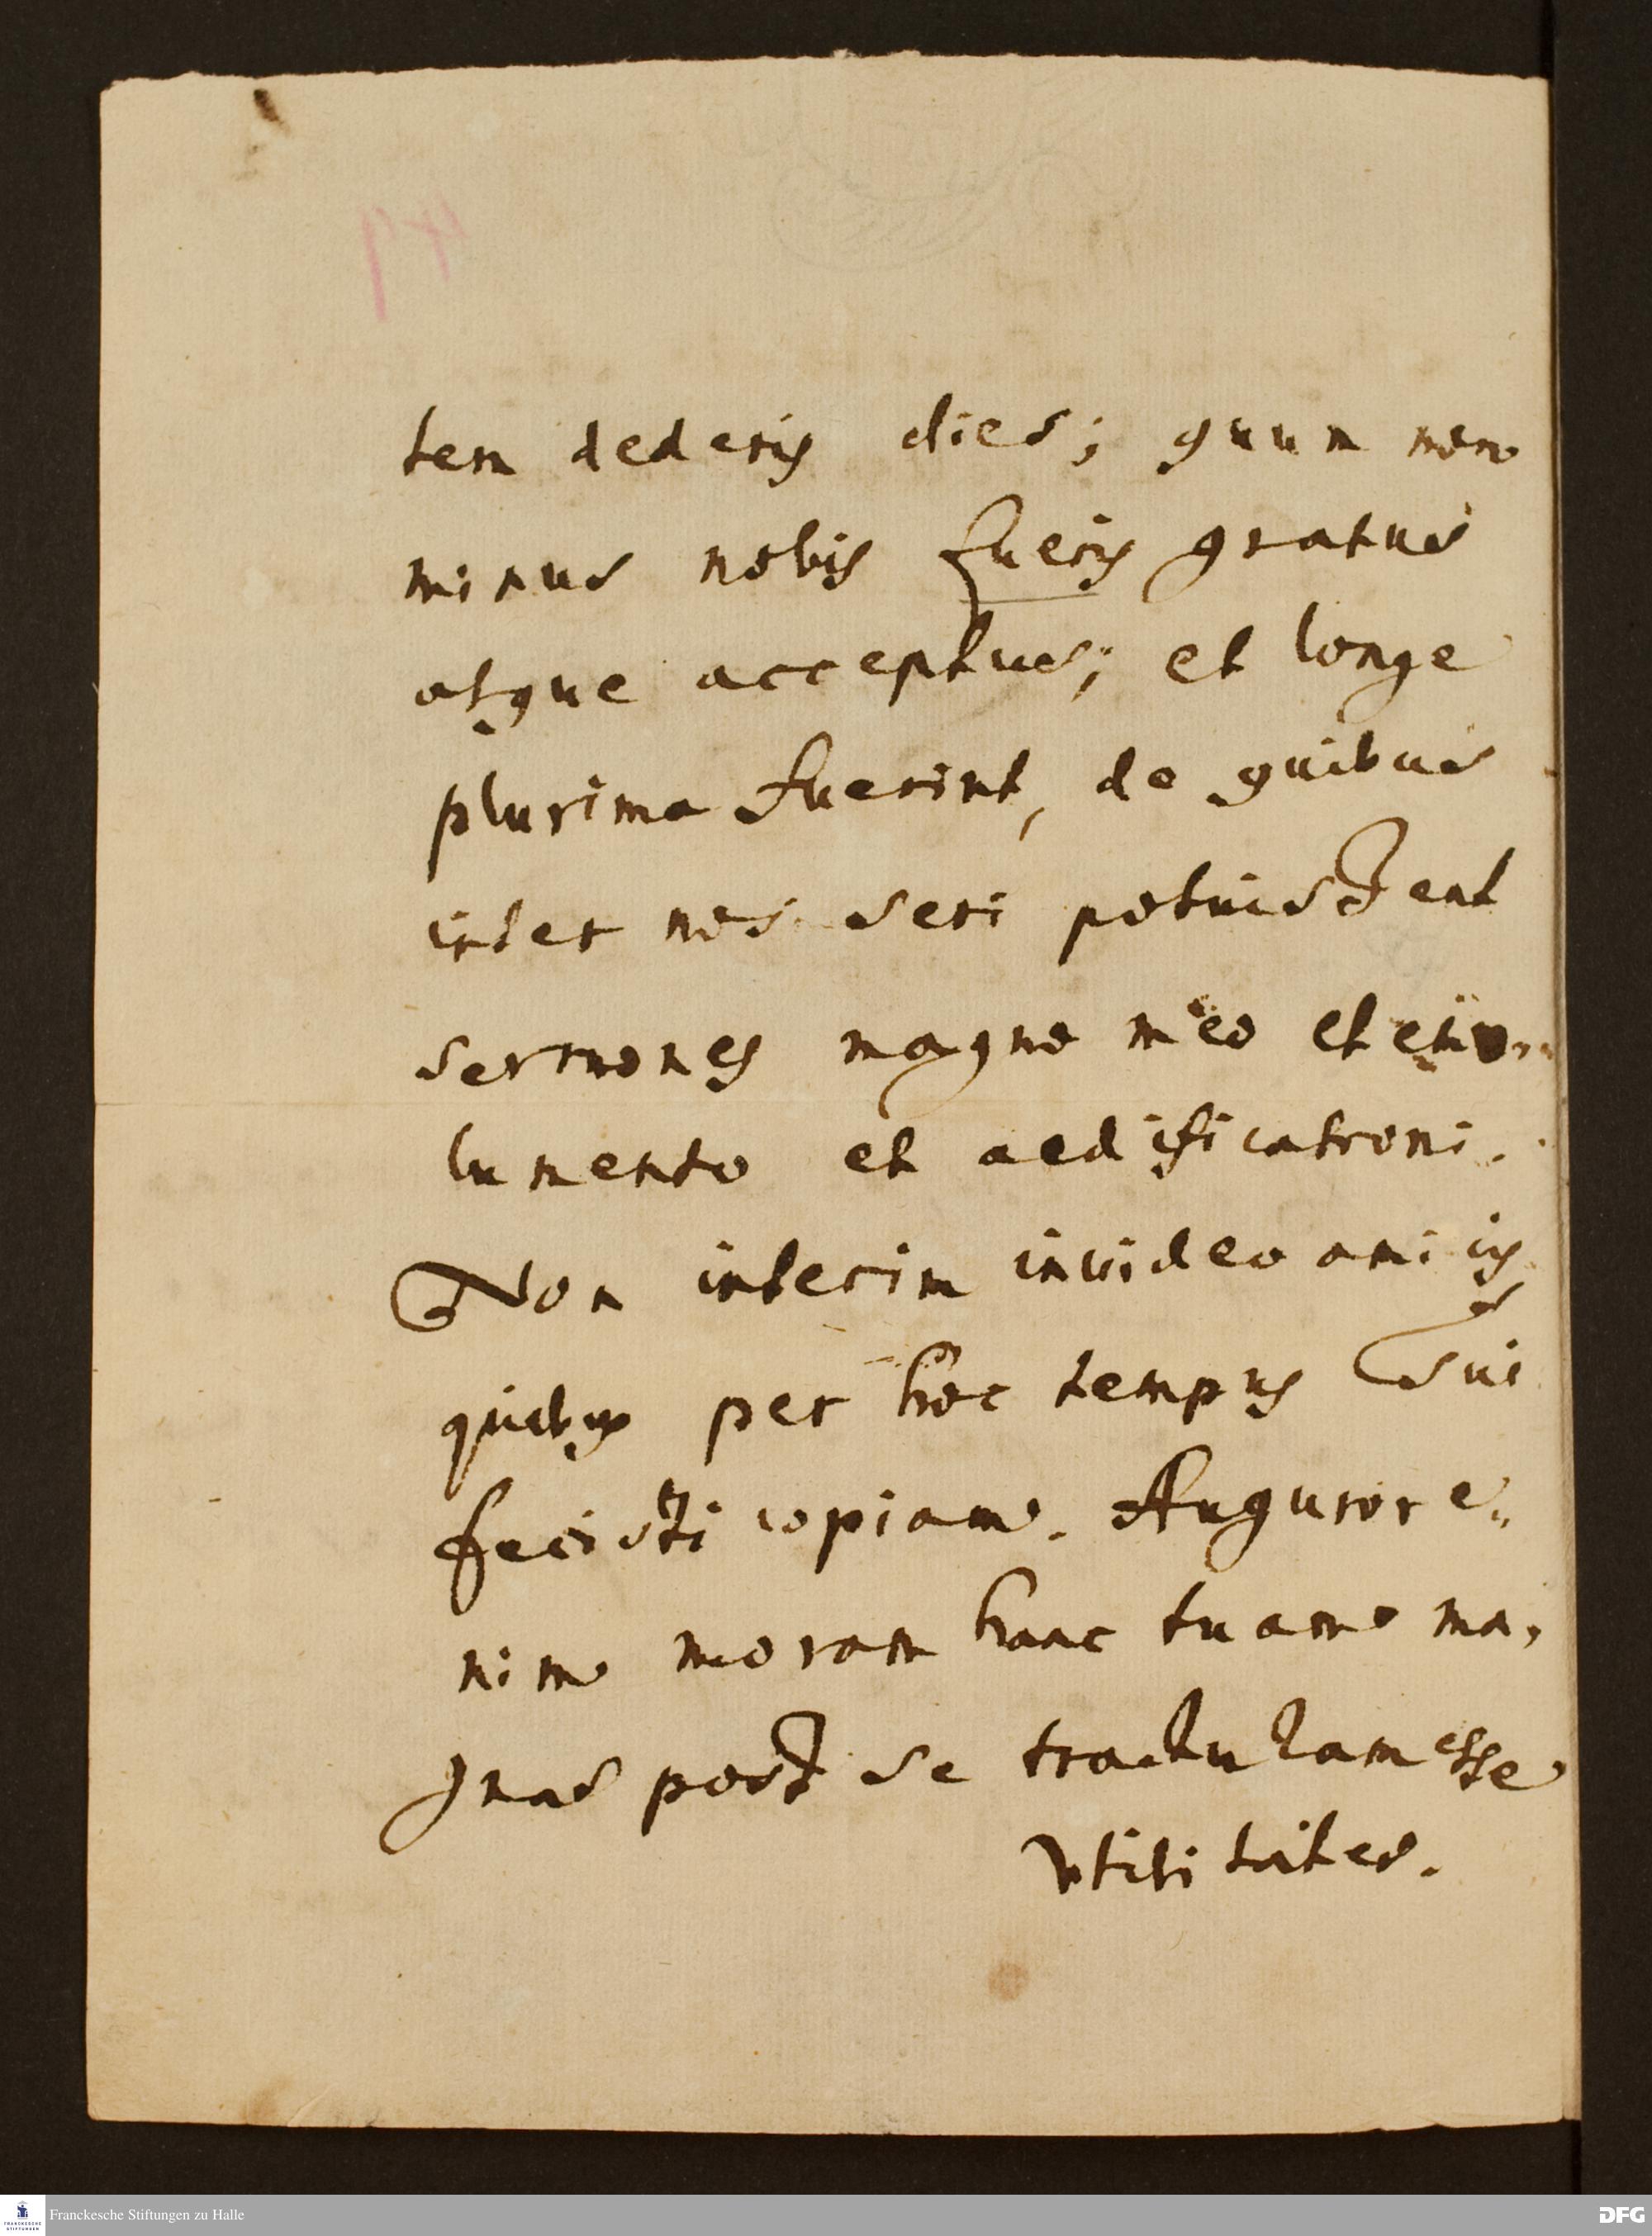 tem dederis dies; quum non
minus nobis fueris gratus
atque acceptus; et longe
plurima fuerint, de quibus
inter nos seri potuissent
sermones magno meo et emo-
lumento et aedificationi.
Non interim invideo amicis
quibus per hoc tempus Tui
fecisti copiam. Auguror e-
nim moram hanc tuam ma-
gnas post se tracturam esse
utilitates.
Franckesche Stiftungen zu Halle
FRANCKESCHE STIFTUNGEN
DFG